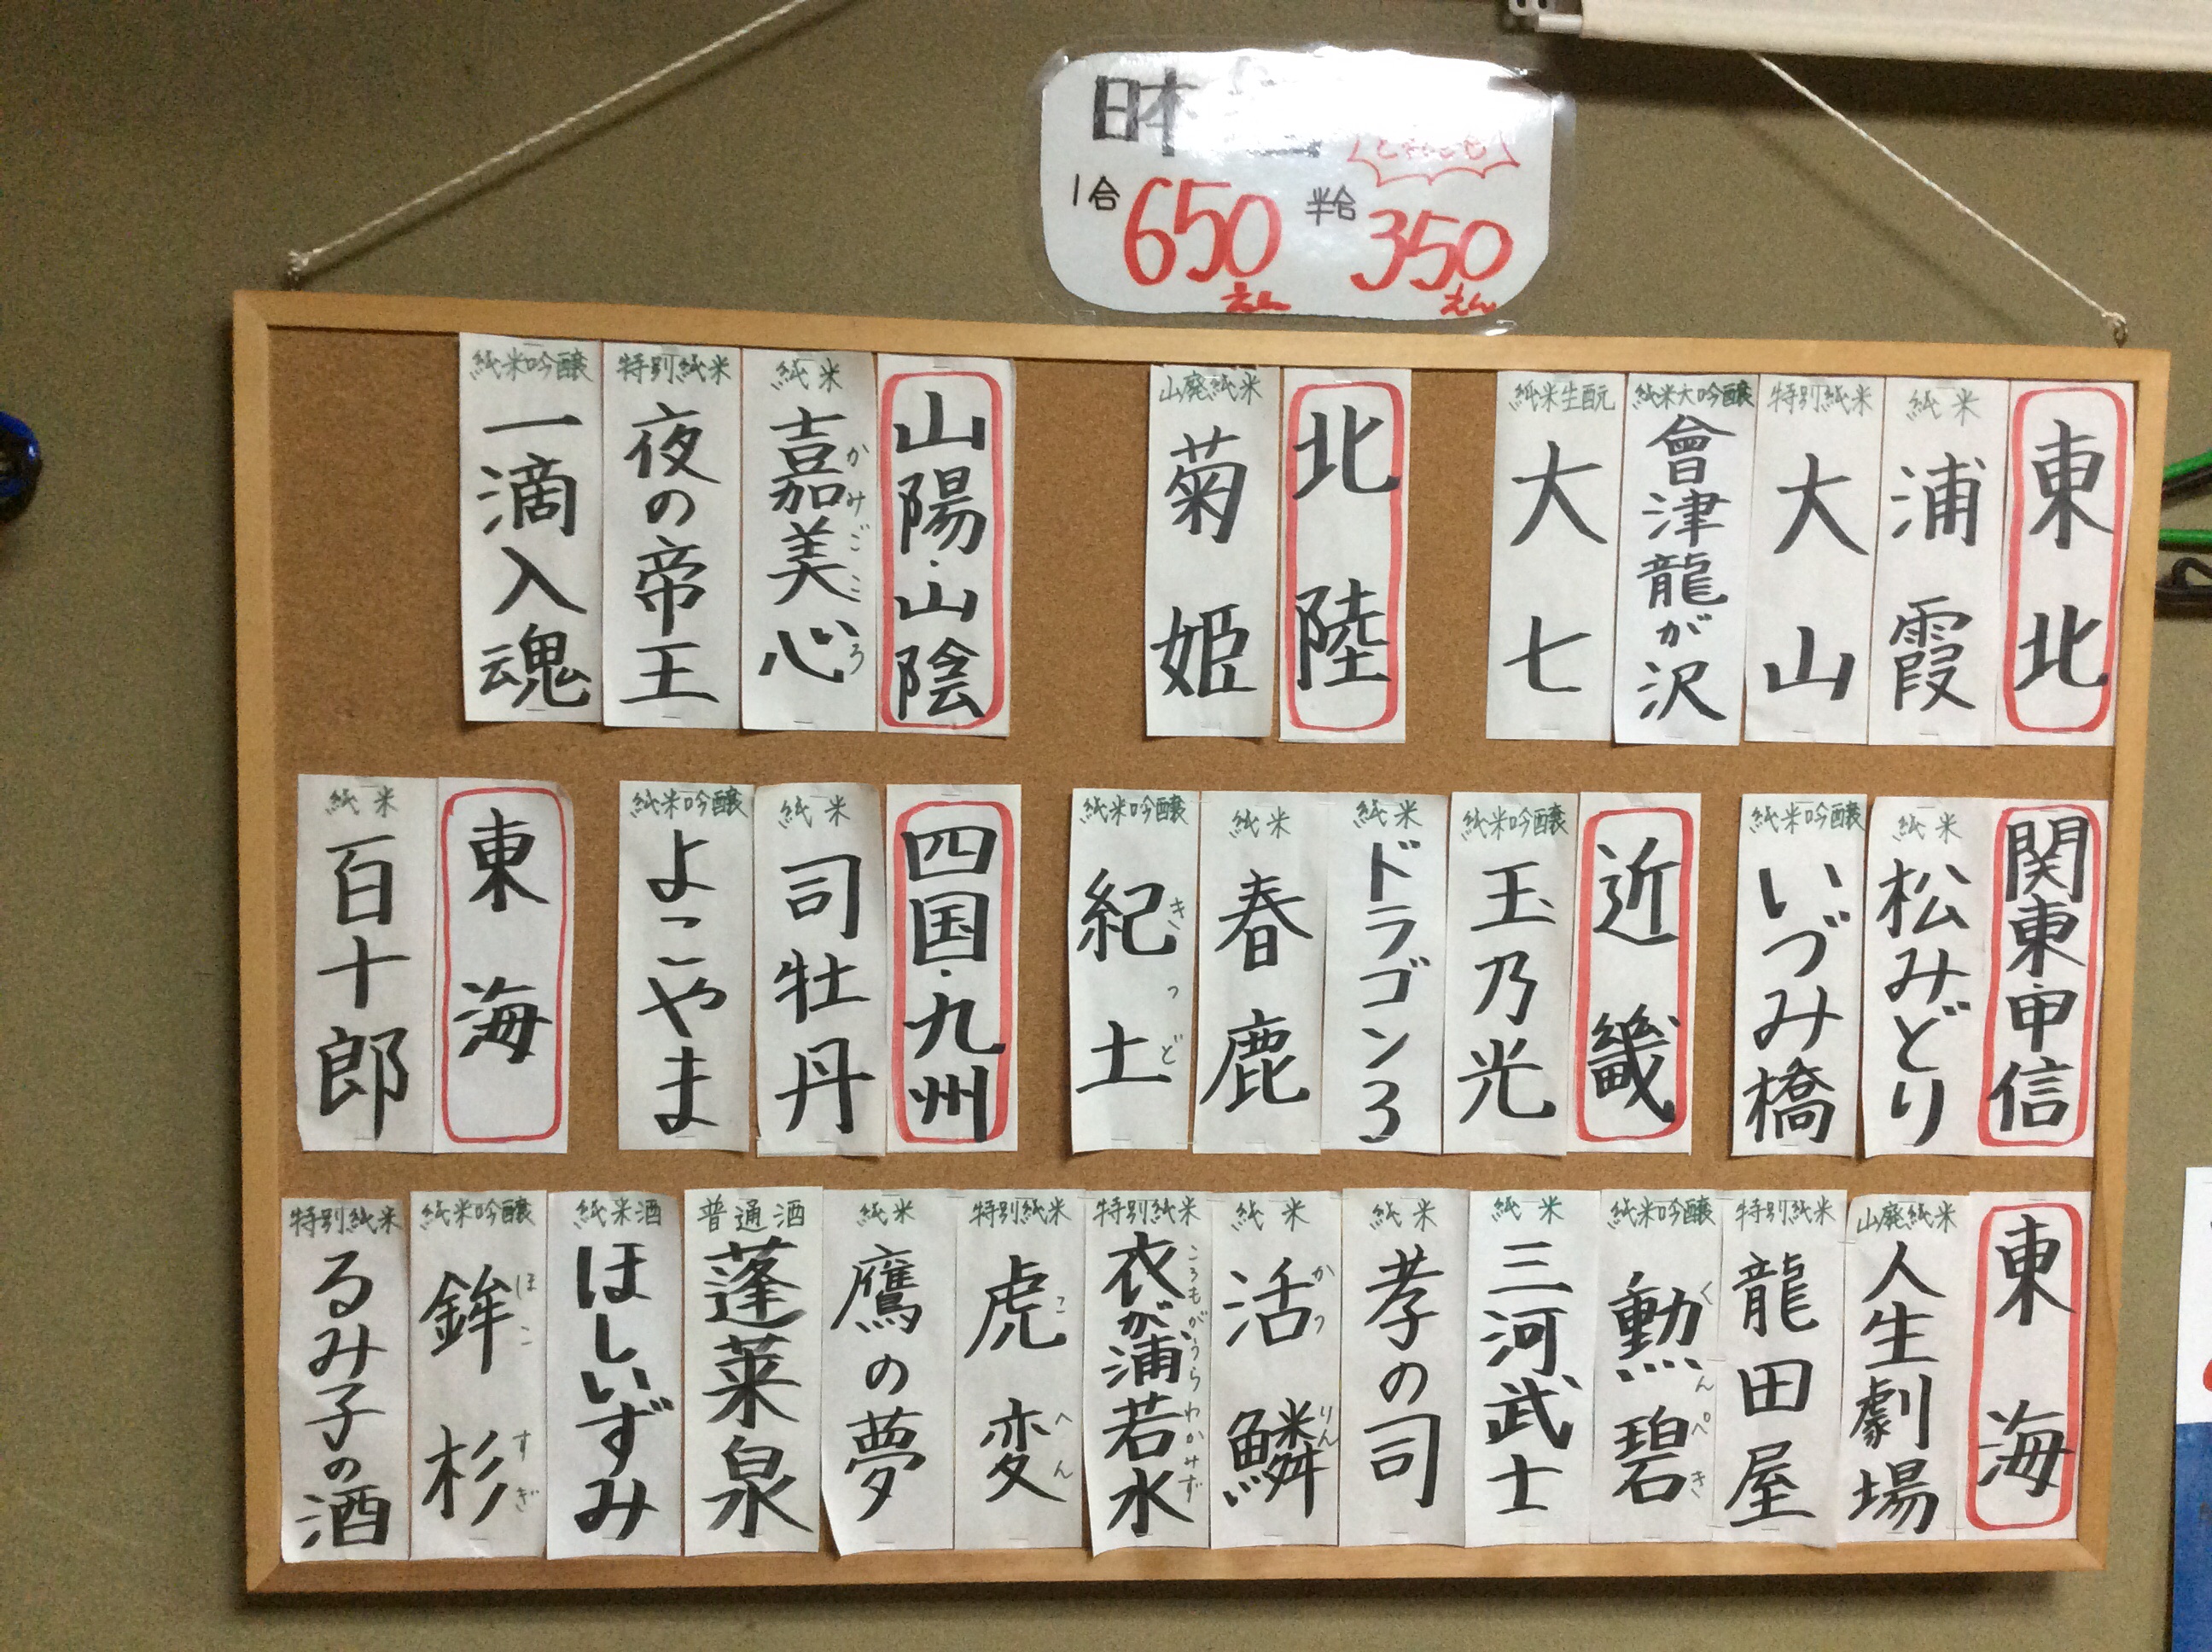 日本
1合 650えん 半合 350えん
東北
純米 浦霞
特別純米 大山
純米大吟醸 會津龍が沢
純米生酛 大七
北陸
山廃純米 菊姫
山陽・山陰
純米 嘉美心 かみごころ
特別純米 夜の帝王
純米吟醸 一滴入魂
関東甲信
純米 松みどり
純米吟醸 いづみ橋
近畿
純米吟醸 玉乃光
純米 ドラゴン3
純米 春鹿
純米吟醸 紀土 きっど
四国・九州
純米 司牡丹
純米吟醸 よこやま
東海
純米 百十郎
東海
山廃純米 人生劇場
特別純米 龍田屋
純米吟醸 勳碧 くんぺき
純米 三河武士
純米 孝の司
純米 活鱗 かつりん
特別純米 衣が浦若水 ころもがうらわかみず
特別純米 虎変 こへん
純米 鷹の夢
普通酒 蓬莱泉
純米酒 ほしいずみ
純米吟醸 鉾杉 ほこすぎ
特別純米 るみ子の酒